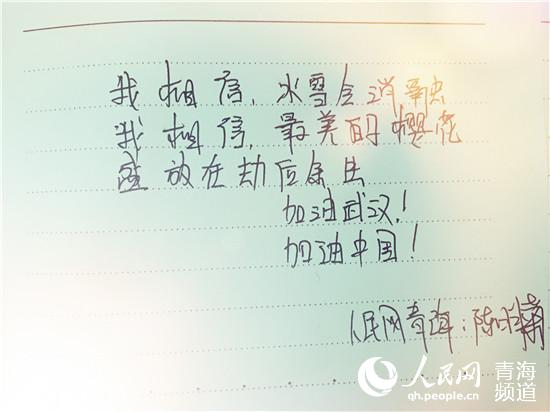 我相信,冰雪会消融
我相信,最美的樱花
盛放在劫后余生
加油武汉!
加油中国!
人民网青海:陈明
人民网 青海频道
qh.people.cn